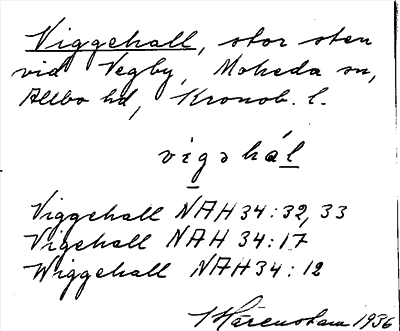 Viggehall, stor sten
vid Vegby, Moheda sn,
Allbo hd, Kronob. l.
vigəhál
Viggehall NAH 34:32, 33
Vigehall NAH 34:17
Wiggehall NAH 34:12
1936